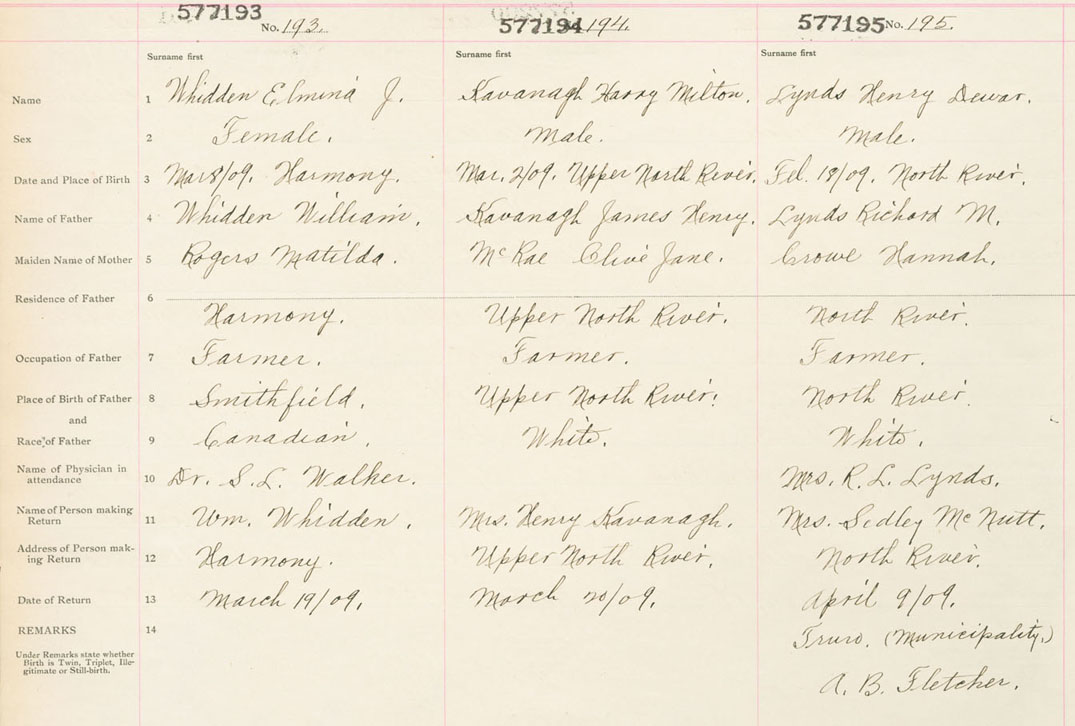 577193 No. 193. 577194 194. 577195 No. 195.
Surname first Surname first Surname first
Name 1 Whidden Elmina J. Kavanagh Harry Milton. Lynds Henry Dewar.
Sex 2 Female. Male. Male.
Date and Place of Birth 3 Mar 8/09. Harmony. Mar. 2/09. Upper North River. Feb. 18/09. North River.
Name of Father 4 Whidden William. Kavanagh James Henry. Lynds Richard M.
Maiden Name of Mother 5 Rogers Matilda. McRae Olive Jane. Crowe Hannah.
Residence of Father 6
Harmony. Upper North River. North River.
Occupation of Father 7 Farmer. Farmer. Farmer.
Place of Birth of Father 8 Smithfield. Upper North River. North River.
and
Race of Father 9 Canadian. White. White.
Name of Physician in
attendance 10 Dr. S. L. Walker. Mrs. R. L. Lynds.
Name of Person making
Return 11 Wm. Whidden. Mrs. Henry Kavanagh. Mrs. Sedley McNutt.
Address of Person mak-
ing Return 12 Harmony. Upper North River. North River.
Date of Return 13 March 19/09. March 20/09. April 9/09.
REMARKS 14 Truro. (Municipality.)
Under Remarks state whether
Birth is Twin, Triplet, Ille-
gitimate or Still-birth.
A. B. Fletcher.